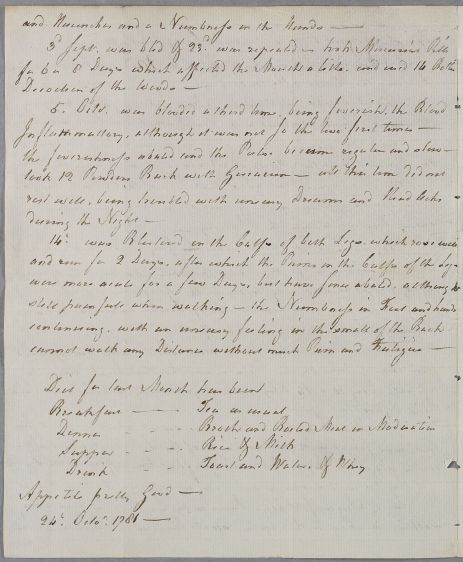 and Haunches and a Numbness in the Hands —
3d Sept. was bled & 23d was repeated — took Mercurial Pills
for 6 or 8 Days which affected the Mouth a little, and used 14 Bottles
Decoction of the Woods —
5. Octr. was blooded a third time, being feverish, the Blood
Inflammatory, although it was not so the two first times —
the feverishness abated and the Pulse became regular and slow —
took 12 Powders Bark with Guaiacum — all this time did not
rest well, being troubled with uneasy Dreams and Head Achs
during the Night —
14th. was Blistered on the Calfs of both Legs, which rose well
and run for 2 Days, after which the Pains in the Calfs of the Legs
were more acute for a few Days, but have since abated, although
still painfull when walking — the Numbness in Feet and hands
continuing, with an uneasy feeling in the small of the Back
cannot walk any Distance without much Pain and Fatigue —
Diet for last Month has been
Breakfast — Tea as usual
Dinner - - Broth and Boiled Meat in Moderation
Supper - - Rice & Milk
Drink - - Toast and Water & Whey
Appetite pretty Good —
24th. Octor. 1781 —